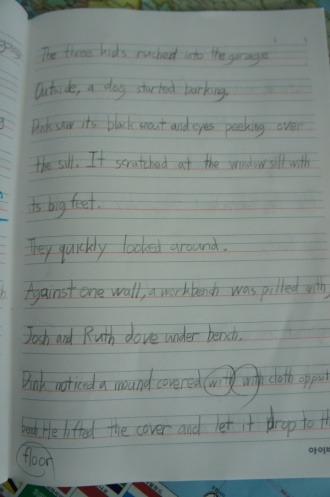 The three kids rushed into the garage
Outside, a dog started barking.
Dink saw its black snout and eyes peeking over
the sill. It scratched at the window sill with
its big feet.
They quickly looked around.
Against one wall, a workbench was pilled with
Josh and Ruth dove under bench.
Dink noticed a mound covered with with cloth opposit
He lifted the cover and let it drop to th
floor